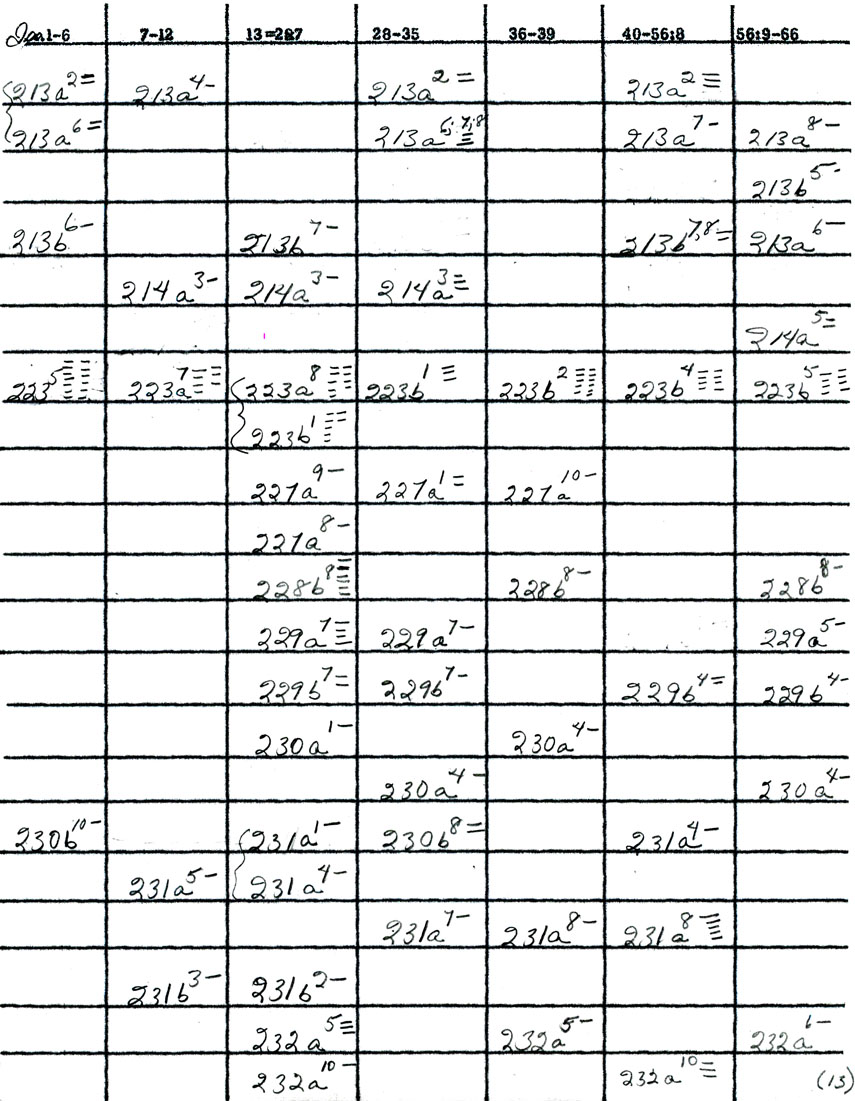 Isa 1-6 7-12 13-27 28-35 36-39 40-56:8 56:9-66
213a²= 213a⁴- 213a²= 213a²≡
213a⁶= 213a⁶;⁷;⁸≡ 213a⁷- 213a⁸-
213b⁵-
213b⁶- 213b⁷- 213b⁷,⁸= 213a⁶-
214a³- 214a³- 214a³≡
214a⁵=
223⁵ 223a⁷ 223a⁸ 223b¹≡ 223b² 223b⁴ 223b⁵
223b¹
227a⁹- 227a¹= 227a¹⁰-
227a⁸-
228b⁸ 228b⁸- 228b⁸-
229a⁷≡ 229a⁷- 229a⁵-
229b⁷= 229b⁷- 229b⁴= 229b⁴-
230a¹- 230a⁴-
230a⁴- 230a⁴-
230b¹⁰- 231a¹- 230b⁸= 231a⁴-
231a⁵- 231a⁴-
231a⁷- 231a⁸- 231a⁸
231b³- 231b²-
232a⁵≡ 232a⁵- 232a⁶-
232a¹⁰- 232a¹⁰≡ (13)